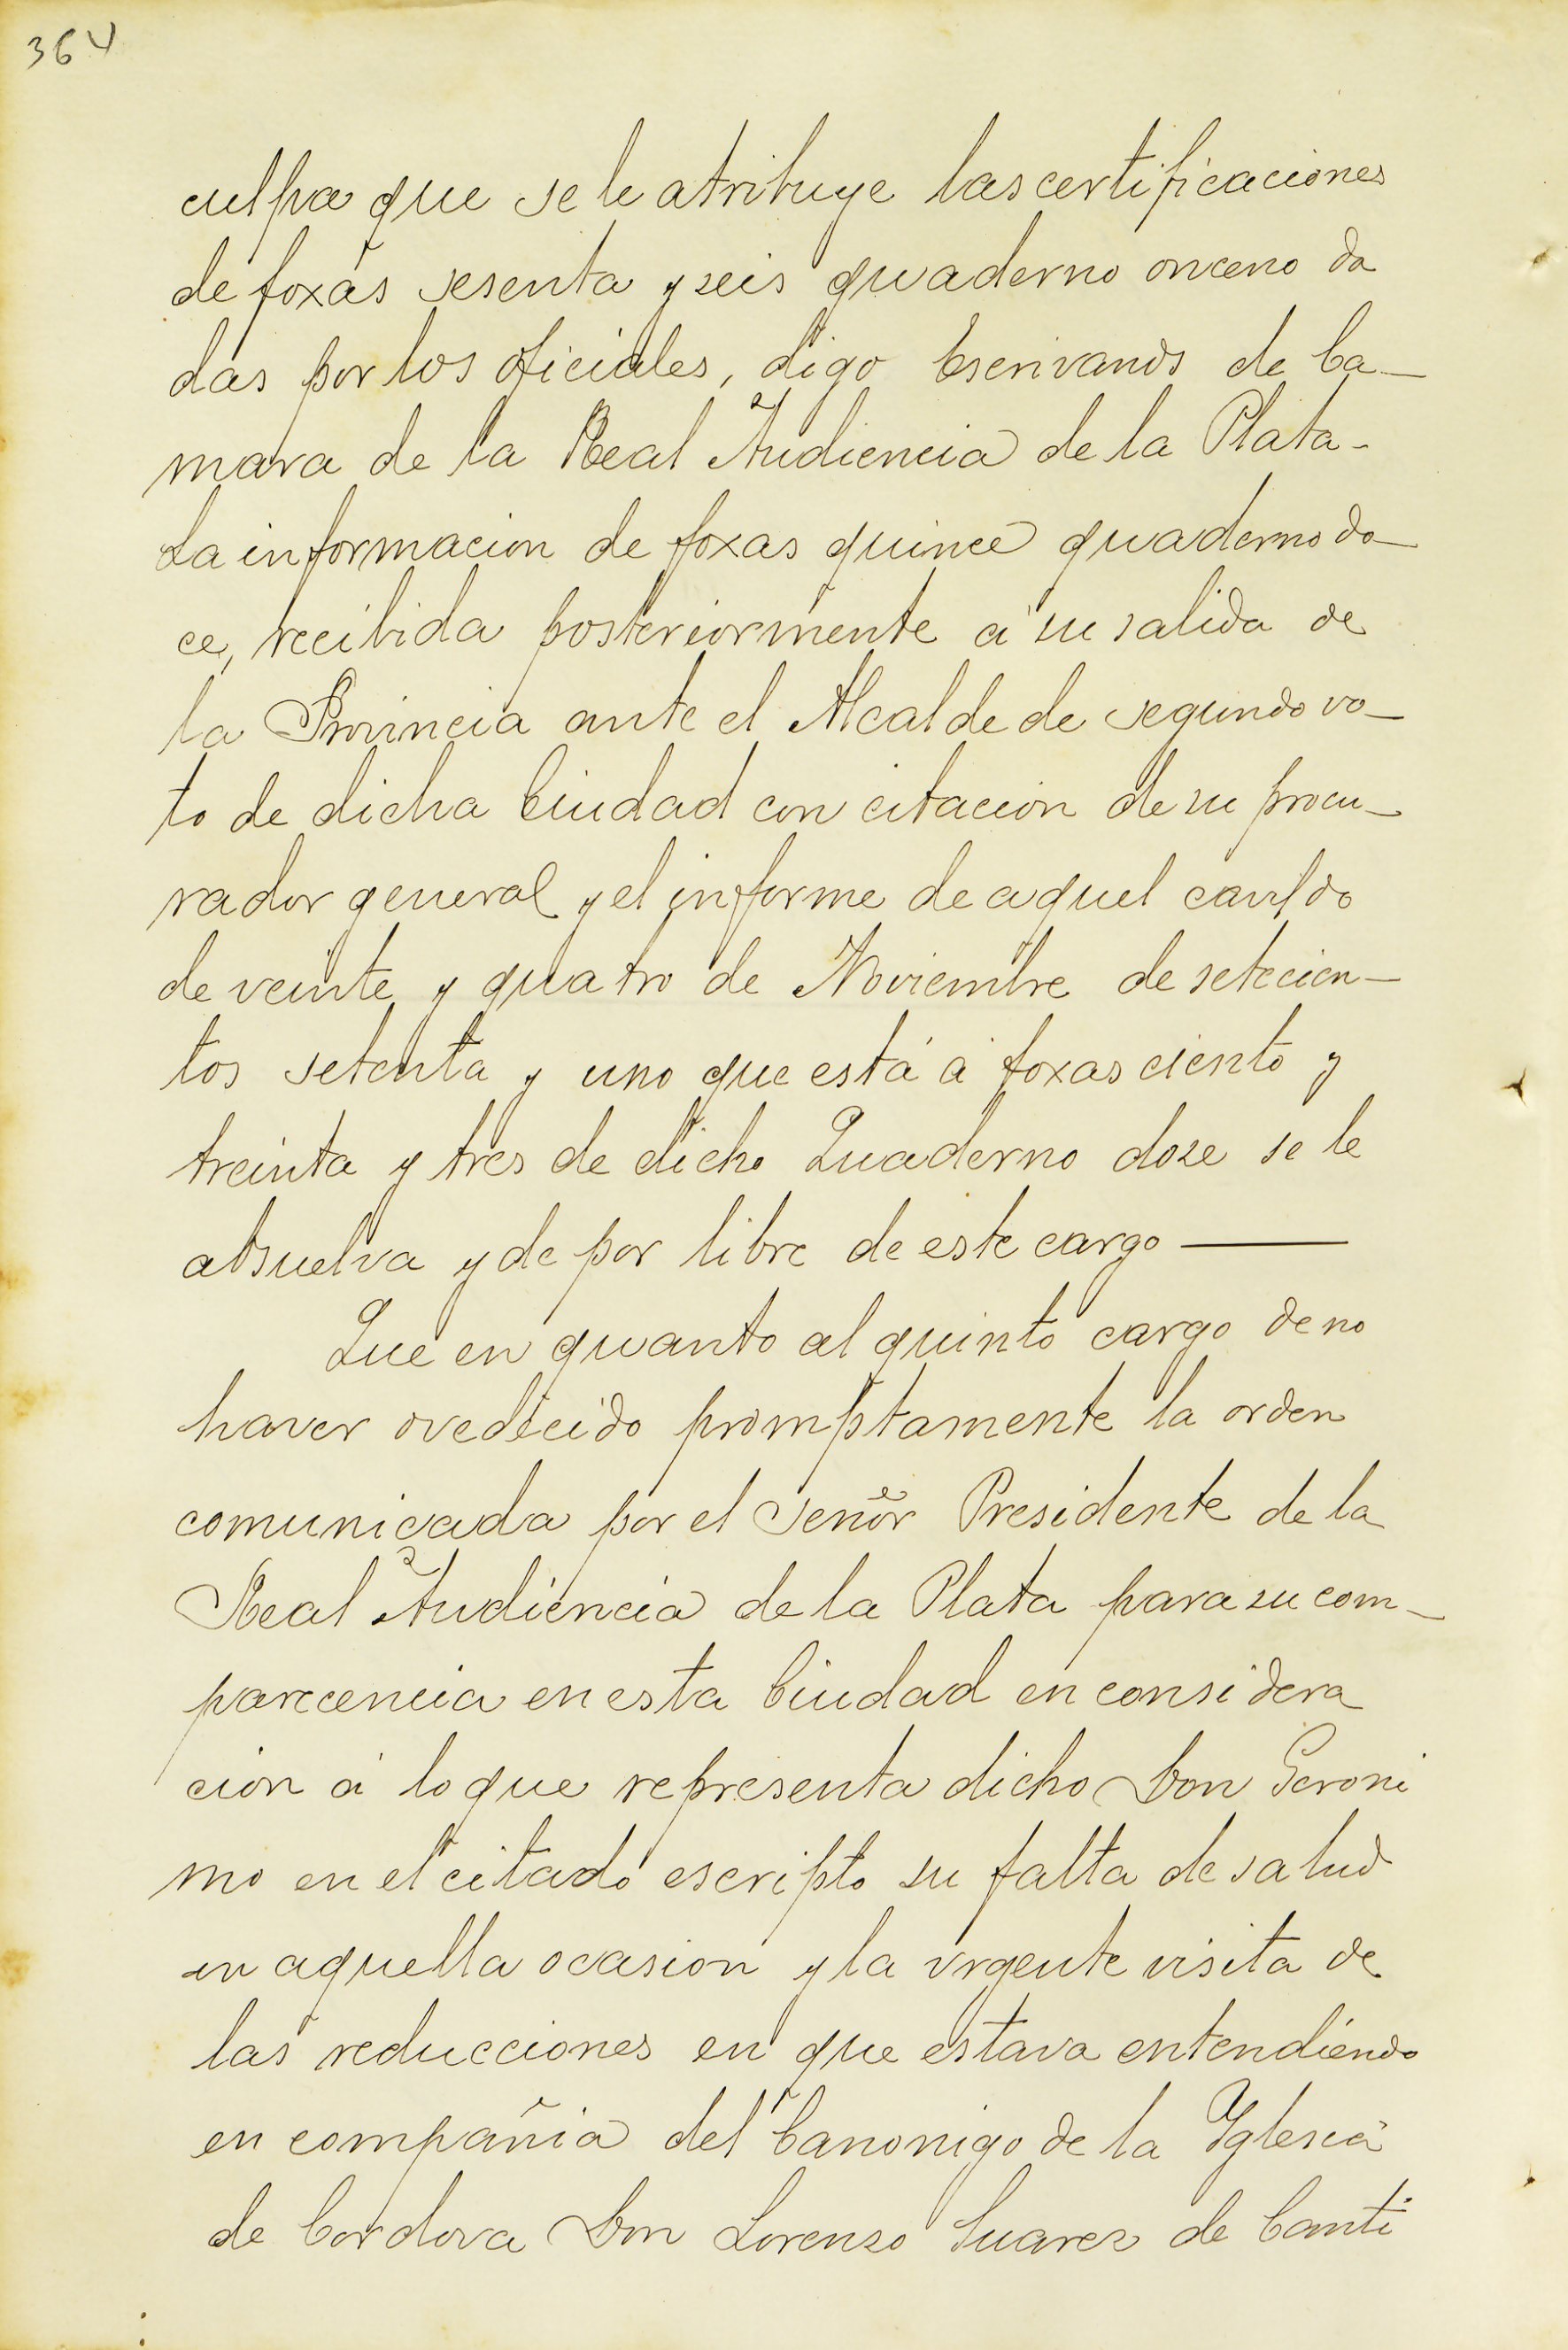 364
culpa que se le atribuye las certificaciones
de foxas sesenta y seis quaderno onceno da
das por los oficiales, digo Escrivanos de Ca-
mara de la Real Audiencia de la Plata-
La informacion de foxas quince quaderno do-
ce, recibida posteriormente a su salida de
la Provincia ante el Alcalde de segundo vo-
to de dicha Ciudad con citacion de su procu-
rador general y el informe de aquel cavildo
de veinte y quatro de Noviembre de setecien-
tos setenta y uno que está a foxas ciento y
treinta y tres de dicho Quaderno doze se le
absuelva y de por libre de este cargo —
Que en quanto al quinto cargo de no
haver ovedecido promptamente la orden
comunicada por el Señor Presidente de la
Real Audiencia de la Plata para su com-
parecencia en esta Ciudad en considera
cion á lo que representa dicho Don Geroni
mo en el citado escripto su falta de salud
en aquella ocasion y la vrgente visita de
las reducciones en que estava entendiendo
en compañia del Canonigo de la Yglesia
de Cordova Don Lorenzo Suarez de Canti